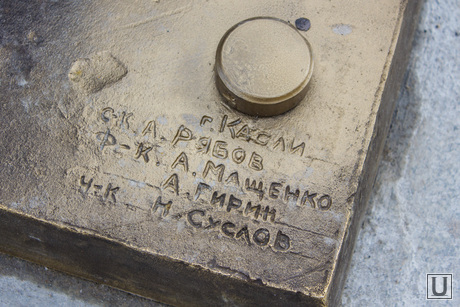 г. Касли
С-К А. Рябов
Ф-К А. Мащенко
А. Гирин
Ч-К Н. Суслов
U